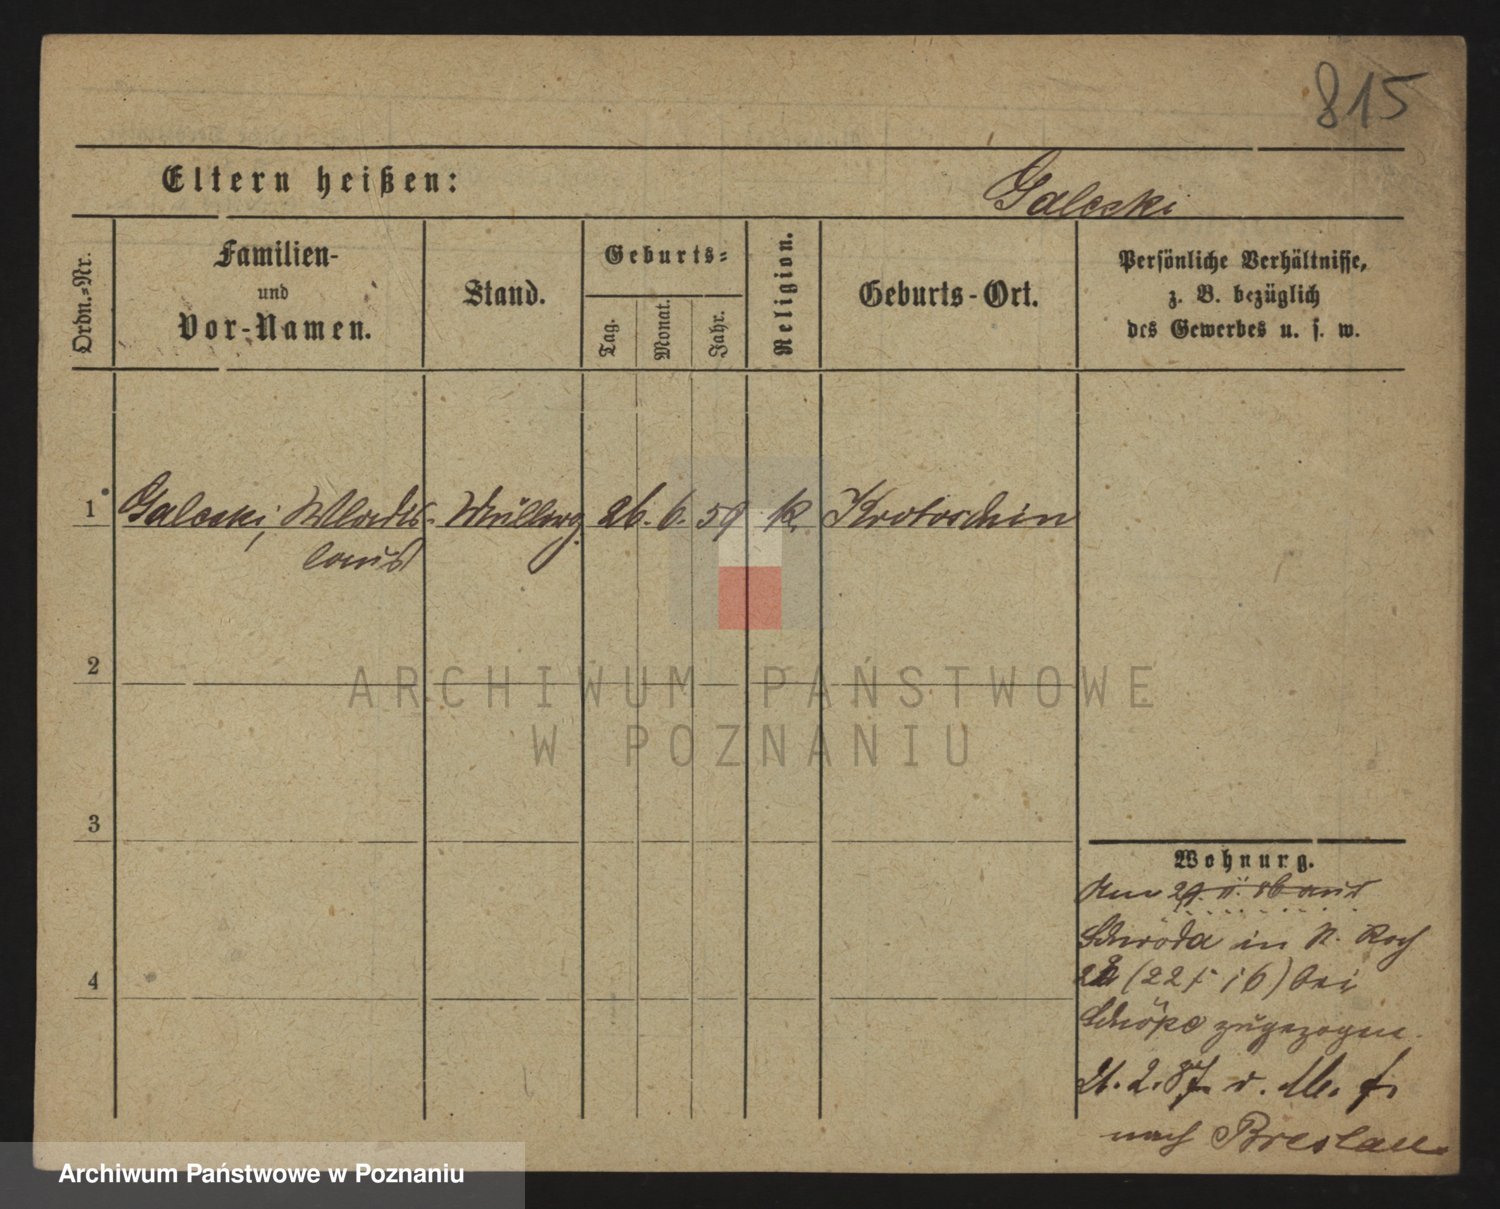 815
Eltern heißen:
Galeski
Ordn.-Nr.
Familien-
und
Vor-Namen.
Stand.
Geburts-
Tag.
Monat.
Jahr.
Religion.
Geburts-Ort.
Persönliche Verhältnisse,
z. B. bezüglich
des Gewerbes u. s. w.
1 Galeski, Wladis- Müllerg. 26. 6. 59 k. Krotoschin
laus
2
ARCHIWUM PAŃSTWOWE
W POZNANIU
3
4
Wohnung.
Am 29. 11. 86 aus
Schroda in St. Roch
(22 / 16) bei
zugezogen.
21. 2. 87
nach Breslau
Archiwum Państwowe w Poznaniu